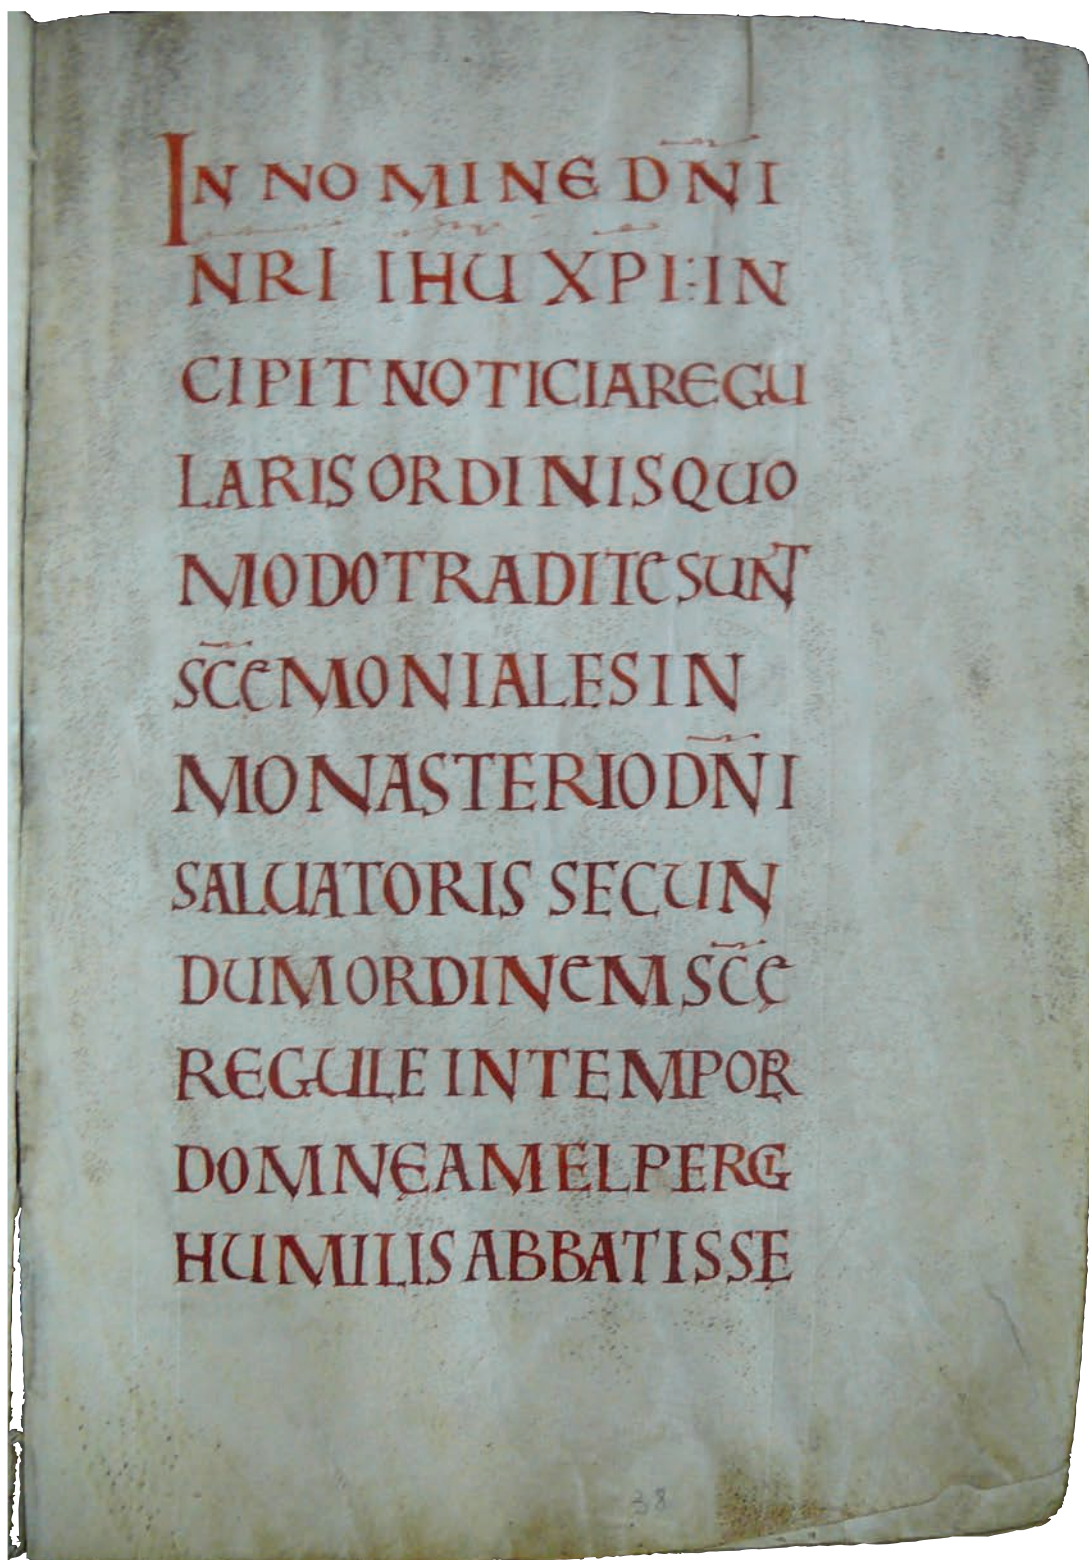 IN NOMINE DN̄I
NRI IHU XPI:IN
CIPIT NOTICIA REGU
LARIS ORDINIS QUO
MODO TRADITE SUNT
SC̄E MONIALES IN
MONASTERIO DN̄I
SALUATORIS SECUN
DUM ORDINEM SC̄Ę
REGULE IN TEMPOR
DOMNĘ AMELPERG
HUMILIS ABBATISSE
38